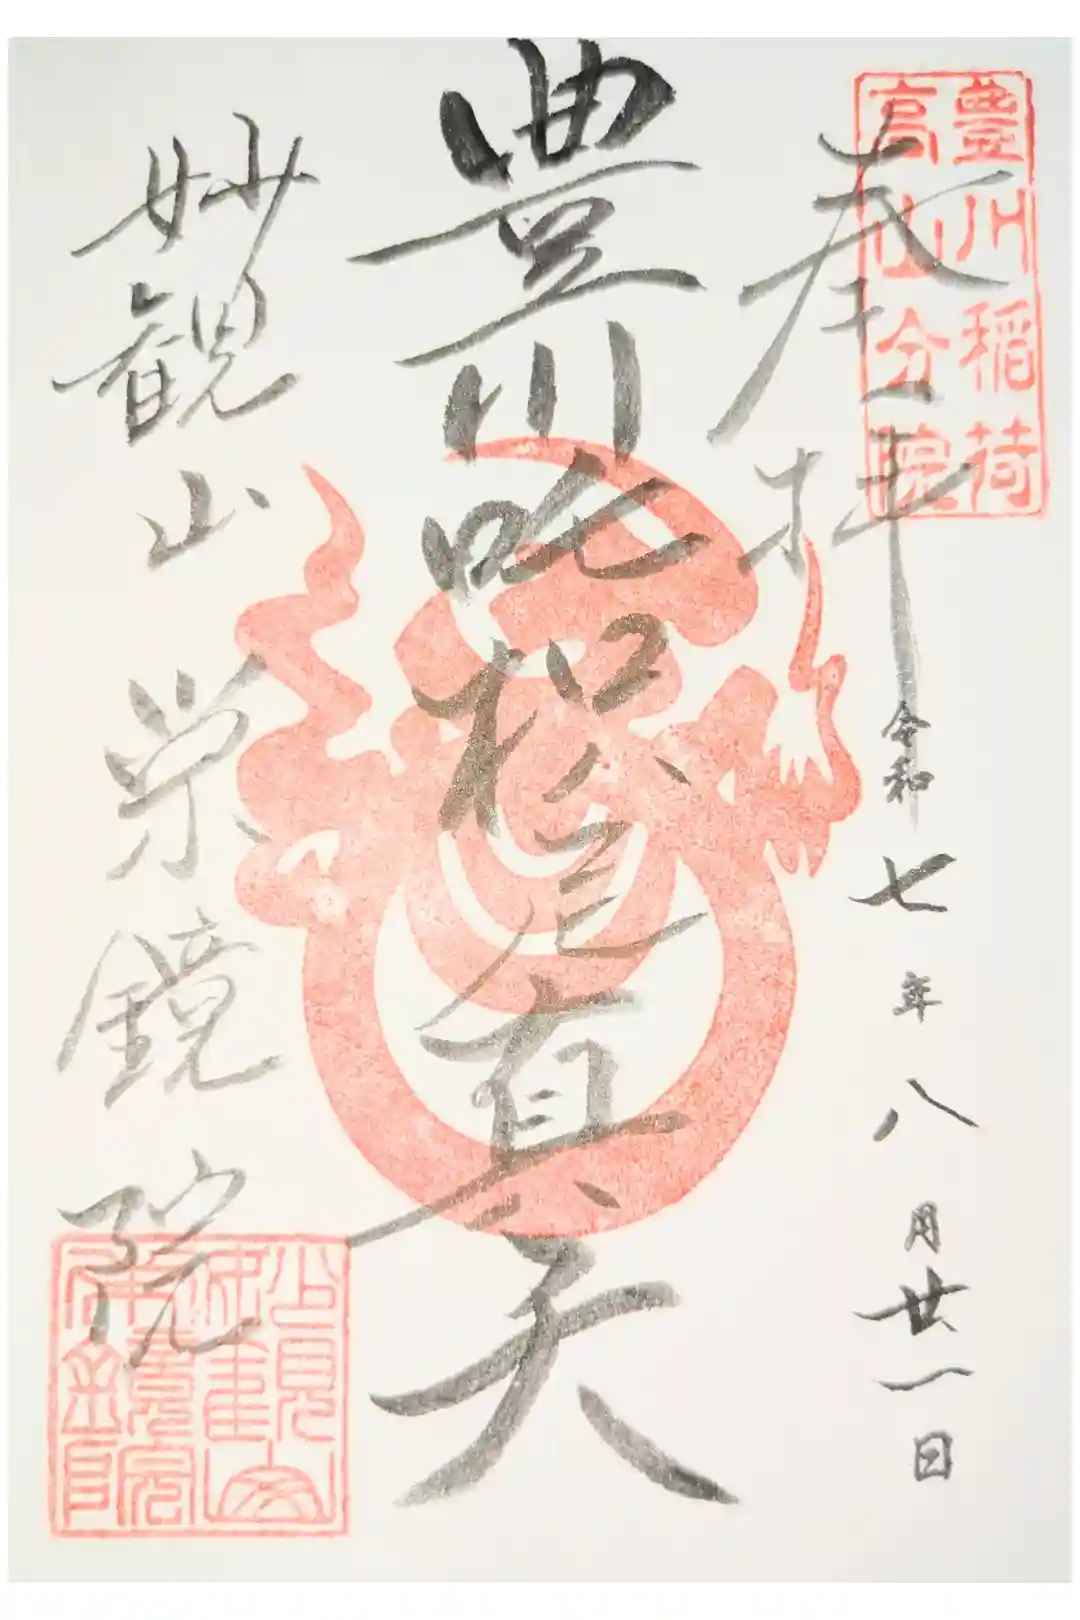 豊川稲荷
高山分院
奉拝
令和七年八月廿一日
豊川吒枳尼真天
妙観山栄鏡院